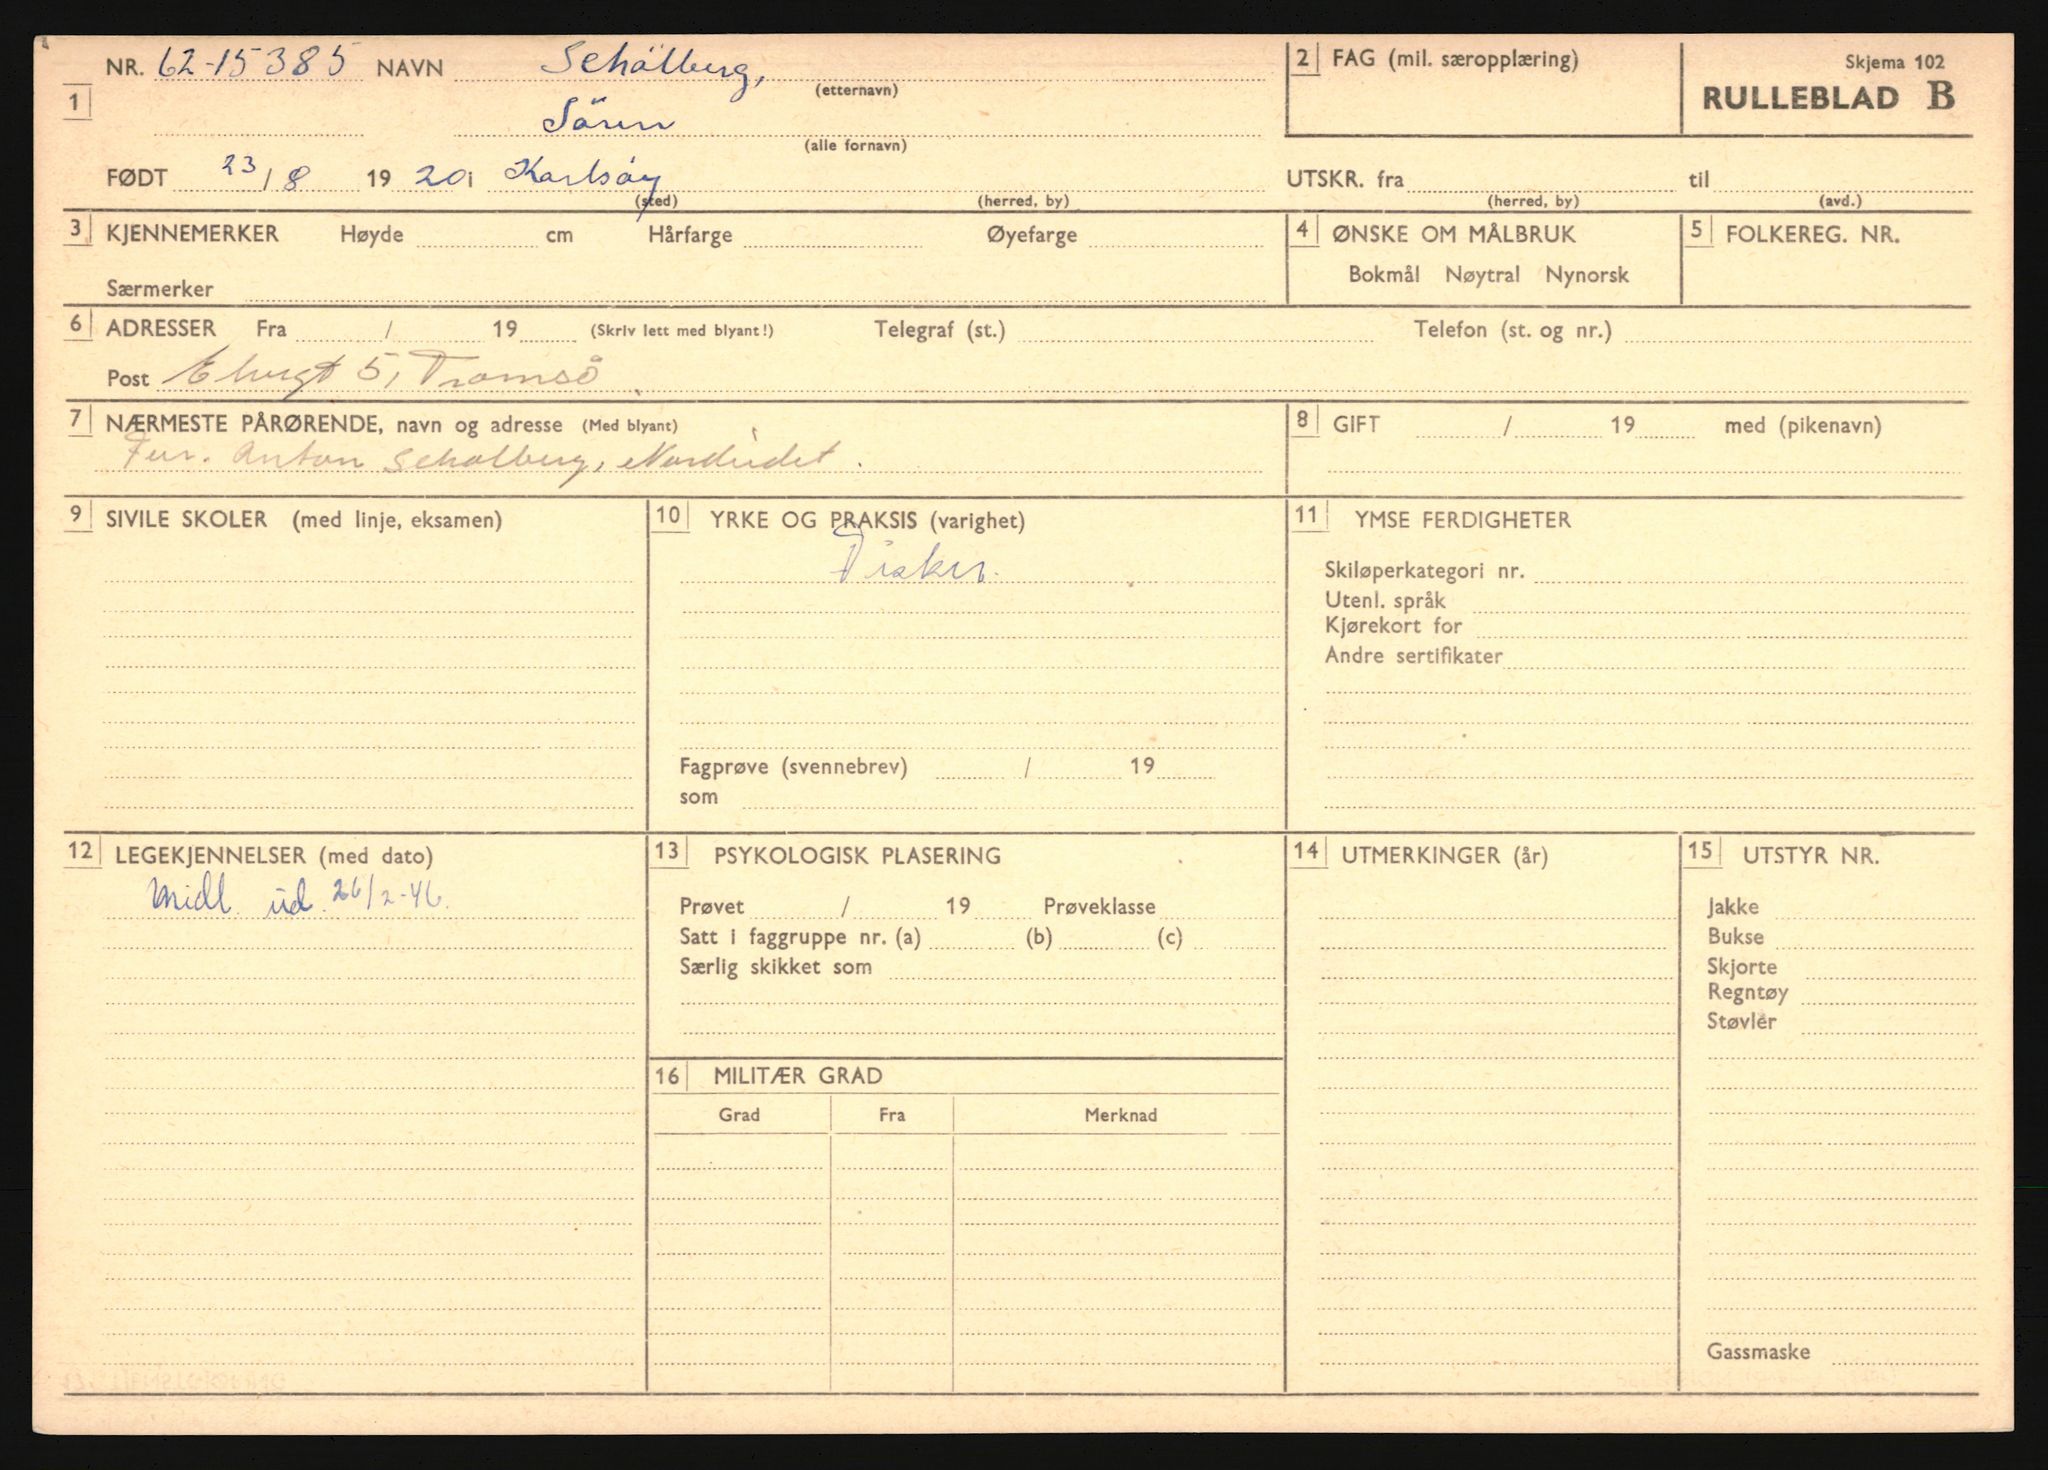 NR. 62-15385 NAVN Schölberg, (etternavn)
2 FAG (mil. særopplæring)
Skjema 102
RULLEBLAD B
1
Sören
(alle fornavn)
FØDT 23/8 1920 i Karlsöy (sted) (herred, by)
UTSKR. fra (herred, by) til (avd.)
3 KJENNEMERKER Høyde cm Hårfarge Øyefarge
Særmerker
4 ØNSKE OM MÅLBRUK
Bokmål Nøytral Nynorsk
5 FOLKEREG. NR.
6 ADRESSER Fra / 19 (Skriv lett med blyant!) Telegraf (st.) Telefon (st. og nr.)
Post Elvegt 5, Tromsö
7 NÆRMESTE PÅRØRENDE, navn og adresse (Med blyant)
Anton Schölberg, Nordeidet.
8 GIFT / 19 med (pikenavn)
9 SIVILE SKOLER (med linje, eksamen)
10 YRKE OG PRAKSIS (varighet)
Fisker.
Fagprøve (svennebrev) / 19
som
11 YMSE FERDIGHETER
Skiløperkategori nr.
Utenl. språk
Kjørekort for
Andre sertifikater
12 LEGEKJENNELSER (med dato)
Midl. ud. 26/2-46.
13 PSYKOLOGISK PLASERING
Prøvet / 19 Prøveklasse
Satt i faggruppe nr. (a) (b) (c)
Særlig skikket som
14 UTMERKINGER (år)
15 UTSTYR NR.
Jakke
Bukse
Skjorte
Regntøy
Støvler
Gassmaske
16 MILITÆR GRAD
Grad Fra Merknad